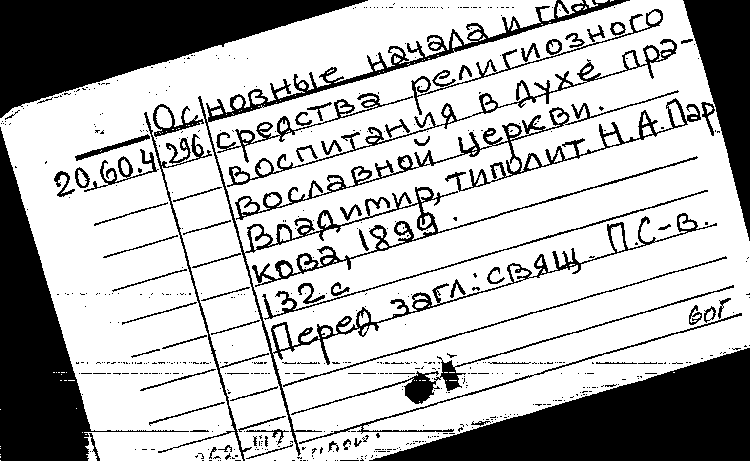 Основные начала и
20.60.4.296. средства религиозного
воспитания в духе пра-
вославной церкви.
Владимир, типолит. Н.А.Пар
кова, 1899.
132 с
Перед загл.: свящ. П.С-в.
бог